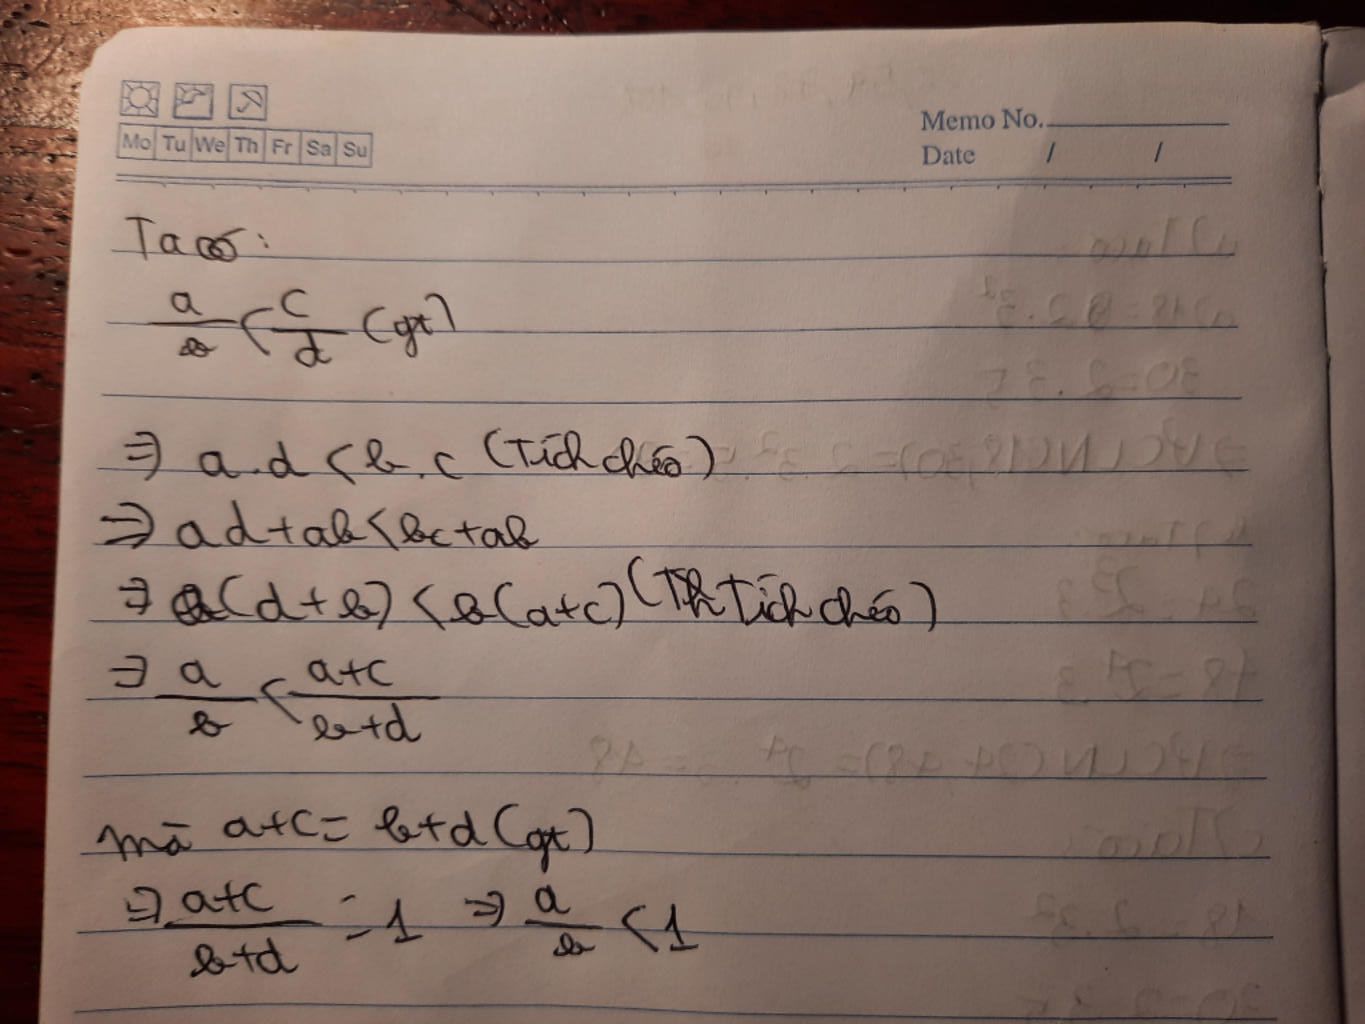 Mo Tu We Th Fr Sa Su
Memo No.
Date / /
Ta có:
a/b < c/d (gt)
⇒ a.d < b.c (Tích chéo)
⇒ ad+ab < bc+ab
⇒ a(d+b) < b(a+c) (Th Tích chéo)
⇒ a/b < a+c/b+d
mà a+c = b+d (gt)
⇒ a+c/b+d = 1 ⇒ a/b < 1